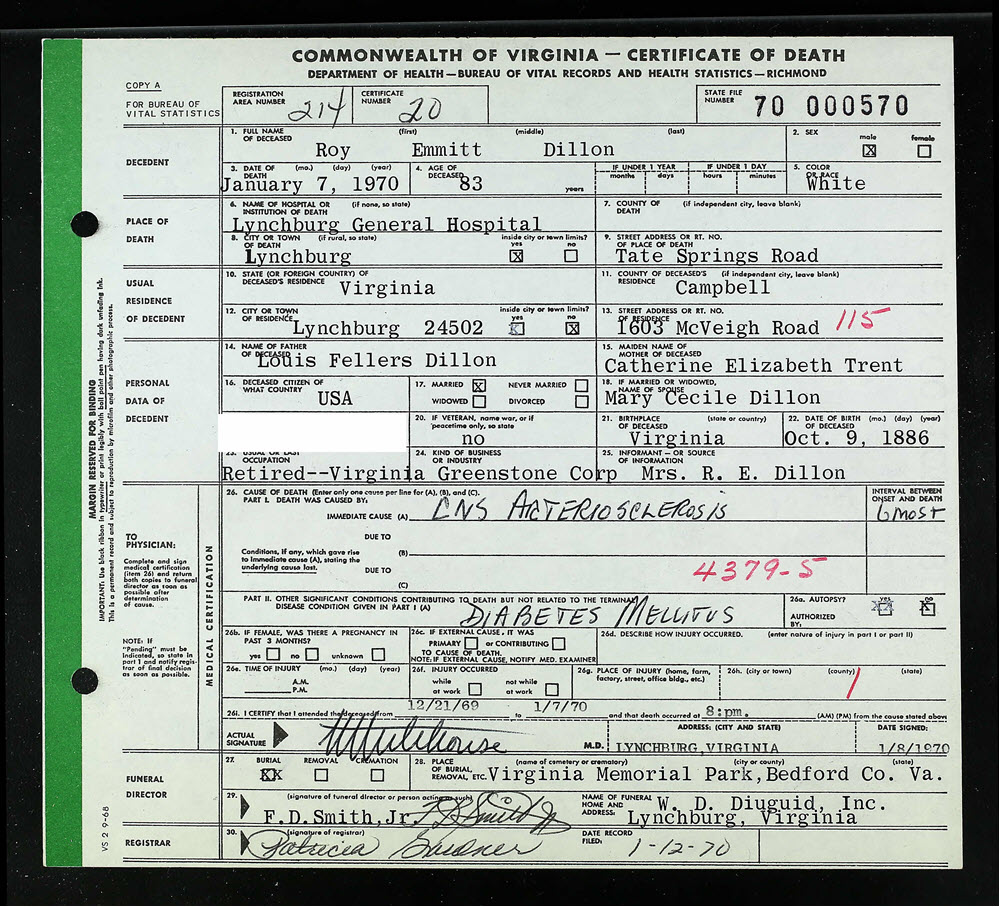 COMMONWEALTH OF VIRGINIA — CERTIFICATE OF DEATH
DEPARTMENT OF HEALTH—BUREAU OF VITAL RECORDS AND HEALTH STATISTICS—RICHMOND
COPY A
FOR BUREAU OF VITAL STATISTICS
REGISTRATION AREA NUMBER 214
CERTIFICATE NUMBER 20
STATE FILE NUMBER 70 000570
DECEDENT
1. FULL NAME OF DECEASED (first) (middle) (last)
Roy Emmitt Dillon
2. SEX male ☒ female ☐
3. DATE OF DEATH (mo.) (day) (year)
January 7, 1970
4. AGE OF DECEASED 83 years
IF UNDER 1 YEAR months days
IF UNDER 1 DAY hours minutes
5. COLOR OR RACE
White
PLACE OF DEATH
6. NAME OF HOSPITAL OR INSTITUTION OF DEATH (if none, so state)
Lynchburg General Hospital
7. COUNTY OF DEATH (if independent city, leave blank)
8. CITY OR TOWN OF DEATH (if rural, so state) inside city or town limits? yes ☒ no ☐
Lynchburg
9. STREET ADDRESS OR RT. NO. OF PLACE OF DEATH
Tate Springs Road
USUAL RESIDENCE OF DECEDENT
10. STATE (OR FOREIGN COUNTRY) OF DECEASED'S RESIDENCE
Virginia
11. COUNTY OF DECEASED'S RESIDENCE (if independent city, leave blank)
Campbell
12. CITY OR TOWN OF RESIDENCE inside city or town limits? yes no ☒
Lynchburg 24502
13. STREET ADDRESS OR RT. NO. OF RESIDENCE
1603 McVeigh Road 115
PERSONAL DATA OF DECEDENT
14. NAME OF FATHER OF DECEASED
Louis Fellers Dillon
15. MAIDEN NAME OF MOTHER OF DECEASED
Catherine Elizabeth Trent
16. DECEASED CITIZEN OF WHAT COUNTRY
USA
17. MARRIED ☒ NEVER MARRIED ☐
WIDOWED ☐ DIVORCED ☐
18. IF MARRIED OR WIDOWED, NAME OF SPOUSE
Mary Cecile Dillon
20. IF VETERAN, name war, or if peacetime only, so state
no
21. BIRTHPLACE OF DECEASED (state or country)
Virginia
22. DATE OF BIRTH OF DECEASED (mo.) (day) (year)
Oct. 9, 1886
23. USUAL OR LAST OCCUPATION
24. KIND OF BUSINESS OR INDUSTRY
25. INFORMANT—OR SOURCE OF INFORMATION
Retired--Virginia Greenstone Corp Mrs. R. E. Dillon
MARGIN RESERVED FOR BINDING
IMPORTANT: Use black ribbon in typewriter or print legibly with ball point pen having dark unfading ink.
This is a permanent record and subject to reproduction by microfilm and other photographic process.
TO PHYSICIAN:
Complete and sign medical certification (item 26) and return both copies to funeral director as soon as possible after determination of cause.
NOTE: If "Pending" must be indicated, so state in part I and notify registrar of final decision as soon as possible.
MEDICAL CERTIFICATION
26. CAUSE OF DEATH (Enter only one cause per line for (A), (B), and (C).
PART I. DEATH WAS CAUSED BY:
IMMEDIATE CAUSE (A) CNS ARTERIOSCLEROSIS
INTERVAL BETWEEN ONSET AND DEATH
6 mos +
DUE TO
Conditions, if any, which gave rise to immediate cause (A), stating the underlying cause last.
(B)
DUE TO
(C)
4379-5
PART II. OTHER SIGNIFICANT CONDITIONS CONTRIBUTING TO DEATH BUT NOT RELATED TO THE TERMINAL DISEASE CONDITION GIVEN IN PART I (A)
DIABETES MELLITUS
26a. AUTOPSY? yes no
AUTHORIZED BY:
26b. IF FEMALE, WAS THERE A PREGNANCY IN PAST 3 MONTHS?
yes ☐ no ☐ unknown ☐
26c. IF EXTERNAL CAUSE, IT WAS
PRIMARY ☐ or CONTRIBUTING ☐
TO CAUSE OF DEATH.
NOTE: IF EXTERNAL CAUSE, NOTIFY MED. EXAMINER
26d. DESCRIBE HOW INJURY OCCURRED. (enter nature of injury in part I or part II)
26e. TIME OF INJURY (mo.) (day) (year)
A.M.
P.M.
26f. INJURY OCCURRED
while at work ☐ not while at work ☐
26g. PLACE OF INJURY (home, farm, factory, street, office bldg., etc.)
26h. (city or town) (county) (state)
26i. I CERTIFY that I attended the deceased from 12/21/69 to 1/7/70 and that death occurred at 8:pm. (AM) (PM) from the cause stated above
ACTUAL SIGNATURE
M.D.
ADDRESS: (CITY AND STATE)
LYNCHBURG, VIRGINIA
DATE SIGNED:
1/8/1970
FUNERAL DIRECTOR
27. BURIAL ☒ REMOVAL ☐ CREMATION ☐
28. PLACE OF BURIAL, REMOVAL, ETC. (name of cemetery or crematory) (city or county) (state)
Virginia Memorial Park, Bedford Co. Va.
29. (signature of funeral director or person acting as such)
F.D.Smith,Jr. F D Smith Jr
NAME OF FUNERAL HOME AND ADDRESS:
W. D. Diuguid, Inc.
Lynchburg, Virginia
REGISTRAR
30. (signature of registrar)
Patricia Gardner
DATE RECORD FILED: 1-12-70
VS 2 9-68